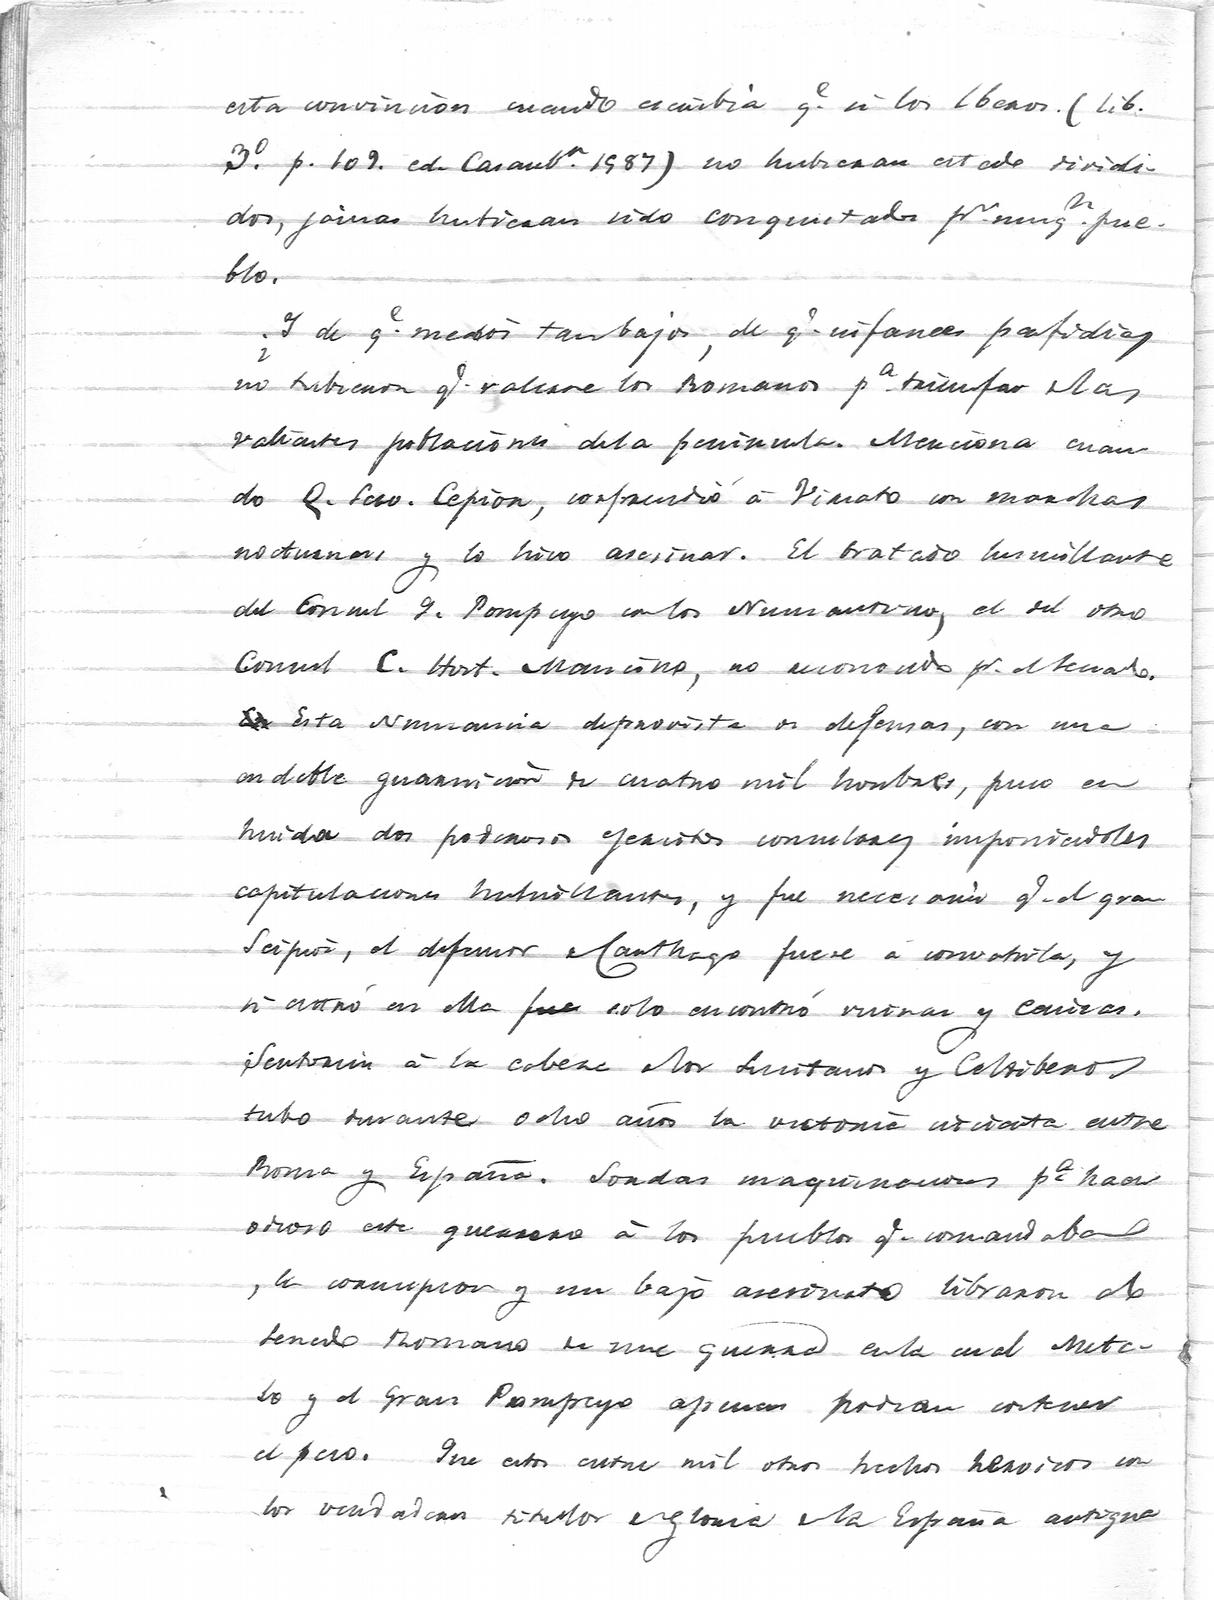 esta convincion cuando escribia q.e si los Iberos. (lib.
3.º p. 109. ed. Casaub.n 1587) no hubieran estado dividi-
dos, jamas hubieran sido conquistados p.r ning.n pue-
blo.
¿Y de q.e medios tan bajos, de q.e infames perfidias
no tubieron q.e valerse los Romanos p.a triunfar de las
valientes poblaciones de la peninsula. Menciona cuan
do Q. Serv. Cepion, sorprendió á Viriato con marchas
nocturnas y lo hizo asesinar. El tratado humillante
del Consul Q. Pompeyo con los Numantinos, el del otro
Consul C. Host. Mancino, no reconocido p.r el Senado.
Esta Numancia desprovista de defensas, con una
endeble guarnicion de cuatro mil hombres, puso en
huida dos poderosos ejercitos consulares imponiendoles
capitulaciones humillantes, y fue necesario q.e el gran
Scipion, el defensor de Carthago fuese á combatirla, y
si entró en ella solo encontró ruinas y cenizas.
Sertorius á la cabeza de los Lusitanos y Celtiberos
tubo durante ocho años la victoria incierta entre
Roma y España. Sordas maquinaciones p.a hacer
odioso este guerrero á los pueblos q.e comandaba
, la corrupcion y un bajo asesinato libraron al
Senado Romano de una guerra en la cual Mete-
lo y el Gran Pompeyo apenas podian contener
el peso. Que estos entre mil otros hechos heroicos son
los verdaderos titulos de gloria de la España antigua